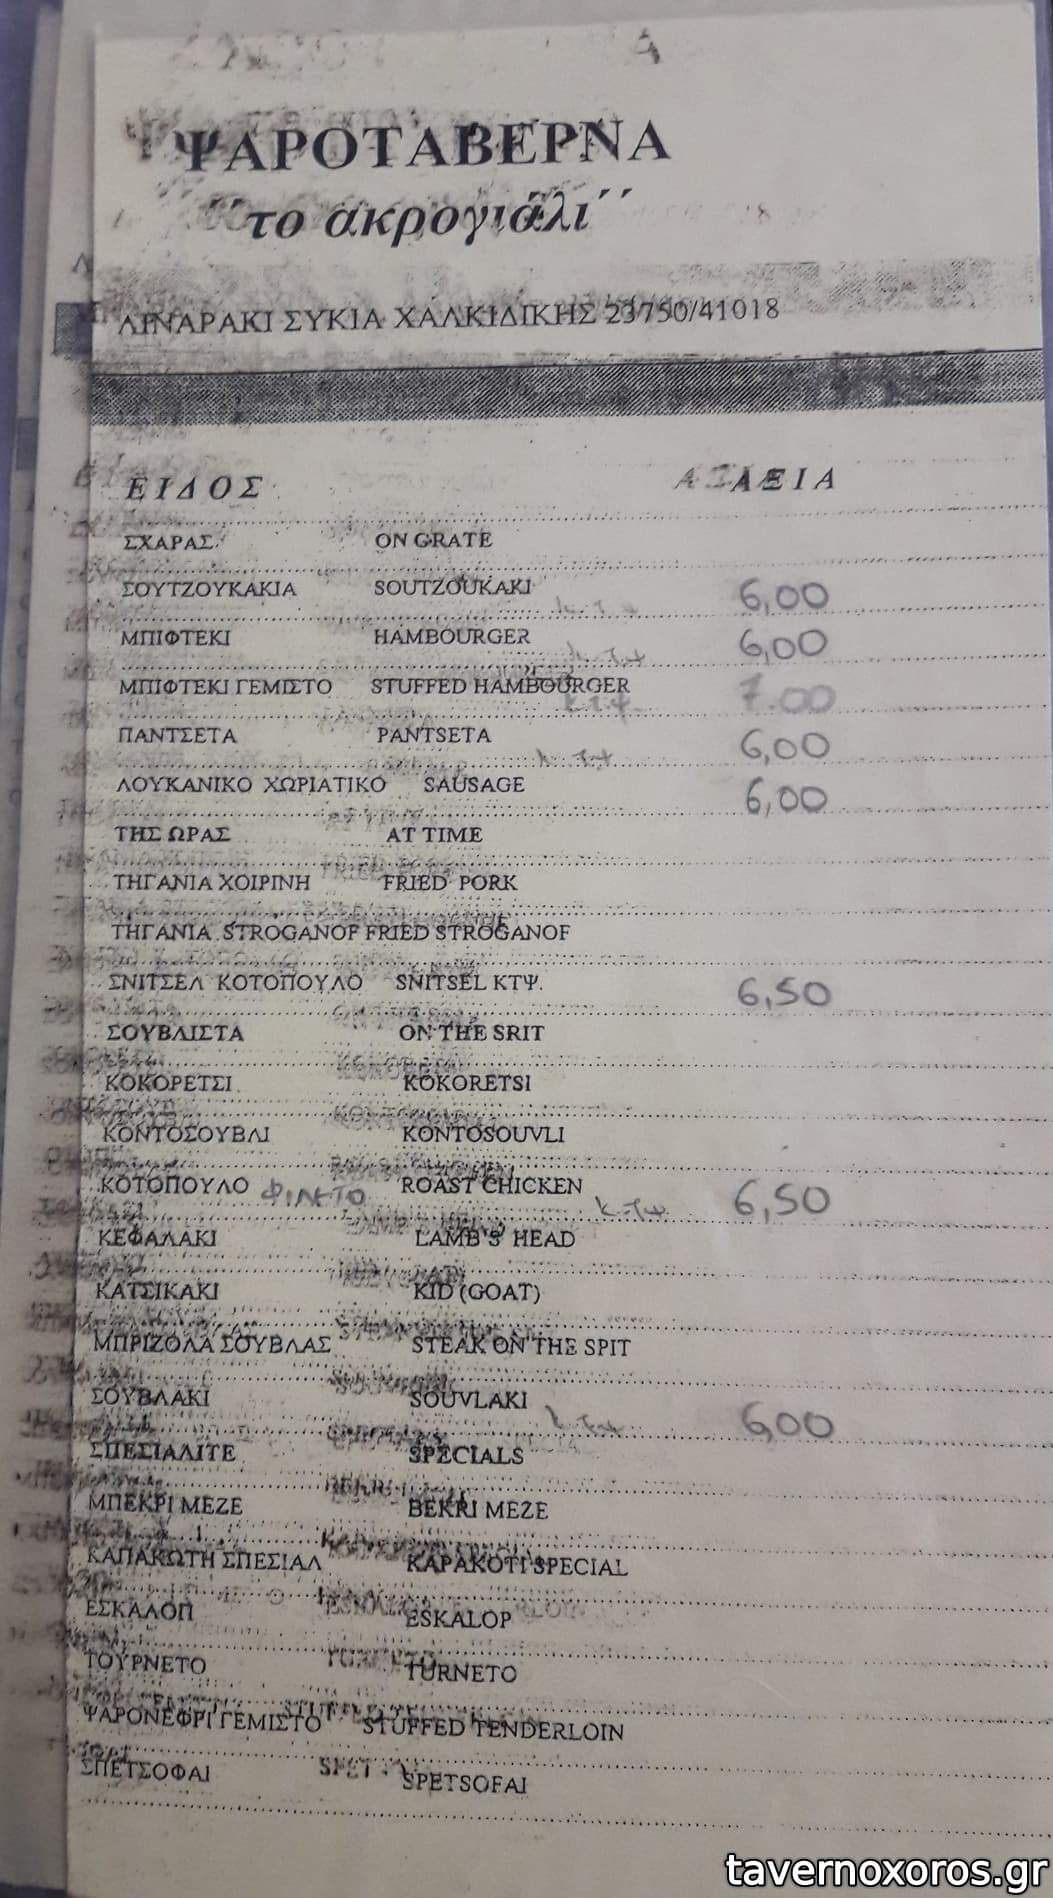 ΨΑΡΟΤΑΒΕΡΝΑ
΄΄το ακρογιάλι΄΄
ΛΙΝΑΡΑΚΙ ΣΥΚΙΑ ΧΑΛΚΙΔΙΚΗΣ 23750/41018
ΕΙΔΟΣ ΑΞΙΑ
ΣΧΑΡΑΣ ON GRATE
ΣΟΥΤΖΟΥΚΑΚΙΑ SOUTZOUKAKI κ-τψ 6,00
ΜΠΙΦΤΕΚΙ HAMBOURGER κ-τψ 6,00
ΜΠΙΦΤΕΚΙ ΓΕΜΙΣΤΟ STUFFED HAMBOURGER κτψ 7.00
ΠΑΝΤΣΕΤΑ PANTSETA κ-τψ 6,00
ΛΟΥΚΑΝΙΚΟ ΧΩΡΙΑΤΙΚΟ SAUSAGE 6,00
ΤΗΣ ΩΡΑΣ AT TIME
ΤΗΓΑΝΙΑ ΧΟΙΡΙΝΗ FRIED PORK
ΤΗΓΑΝΙΑ STROGANOF FRIED STROGANOF
ΣΝΙΤΣΕΛ ΚΟΤΟΠΟΥΛΟ SNITSEL ΚΤΨ. 6,50
ΣΟΥΒΛΙΣΤΑ ON THE SRIT
ΚΟΚΟΡΕΤΣΙ KOKORETSI
ΚΟΝΤΟΣΟΥΒΛΙ KONTOSOUVLI
ΚΟΤΟΠΟΥΛΟ ΦΙΛΕΤΟ ROAST CHICKEN κ-τψ 6,50
ΚΕΦΑΛΑΚΙ LAMB'S HEAD
ΚΑΤΣΙΚΑΚΙ KID (GOAT)
ΜΠΡΙΖΟΛΑ ΣΟΥΒΛΑΣ STEAK ON THE SPIT
ΣΟΥΒΛΑΚΙ SOUVLAKI κ-τψ 6,00
ΣΠΕΣΙΑΛΙΤΕ SPECIALS
ΜΠΕΚΡΙ ΜΕΖΕ BEKRI MEZE
ΚΑΠΑΚΩΤΗ ΣΠΕΣΙΑΛ KAPAKOTI SPECIAL
ΕΣΚΑΛΟΠ ESKALOP
ΤΟΥΡΝΕΤΟ TURNETO
ΨΑΡΟΝΕΦΡΙ ΓΕΜΙΣΤΟ STUFFED TENDERLOIN
ΣΠΕΤΣΟΦΑΙ SPETSOFAI
tavernoxoros.gr